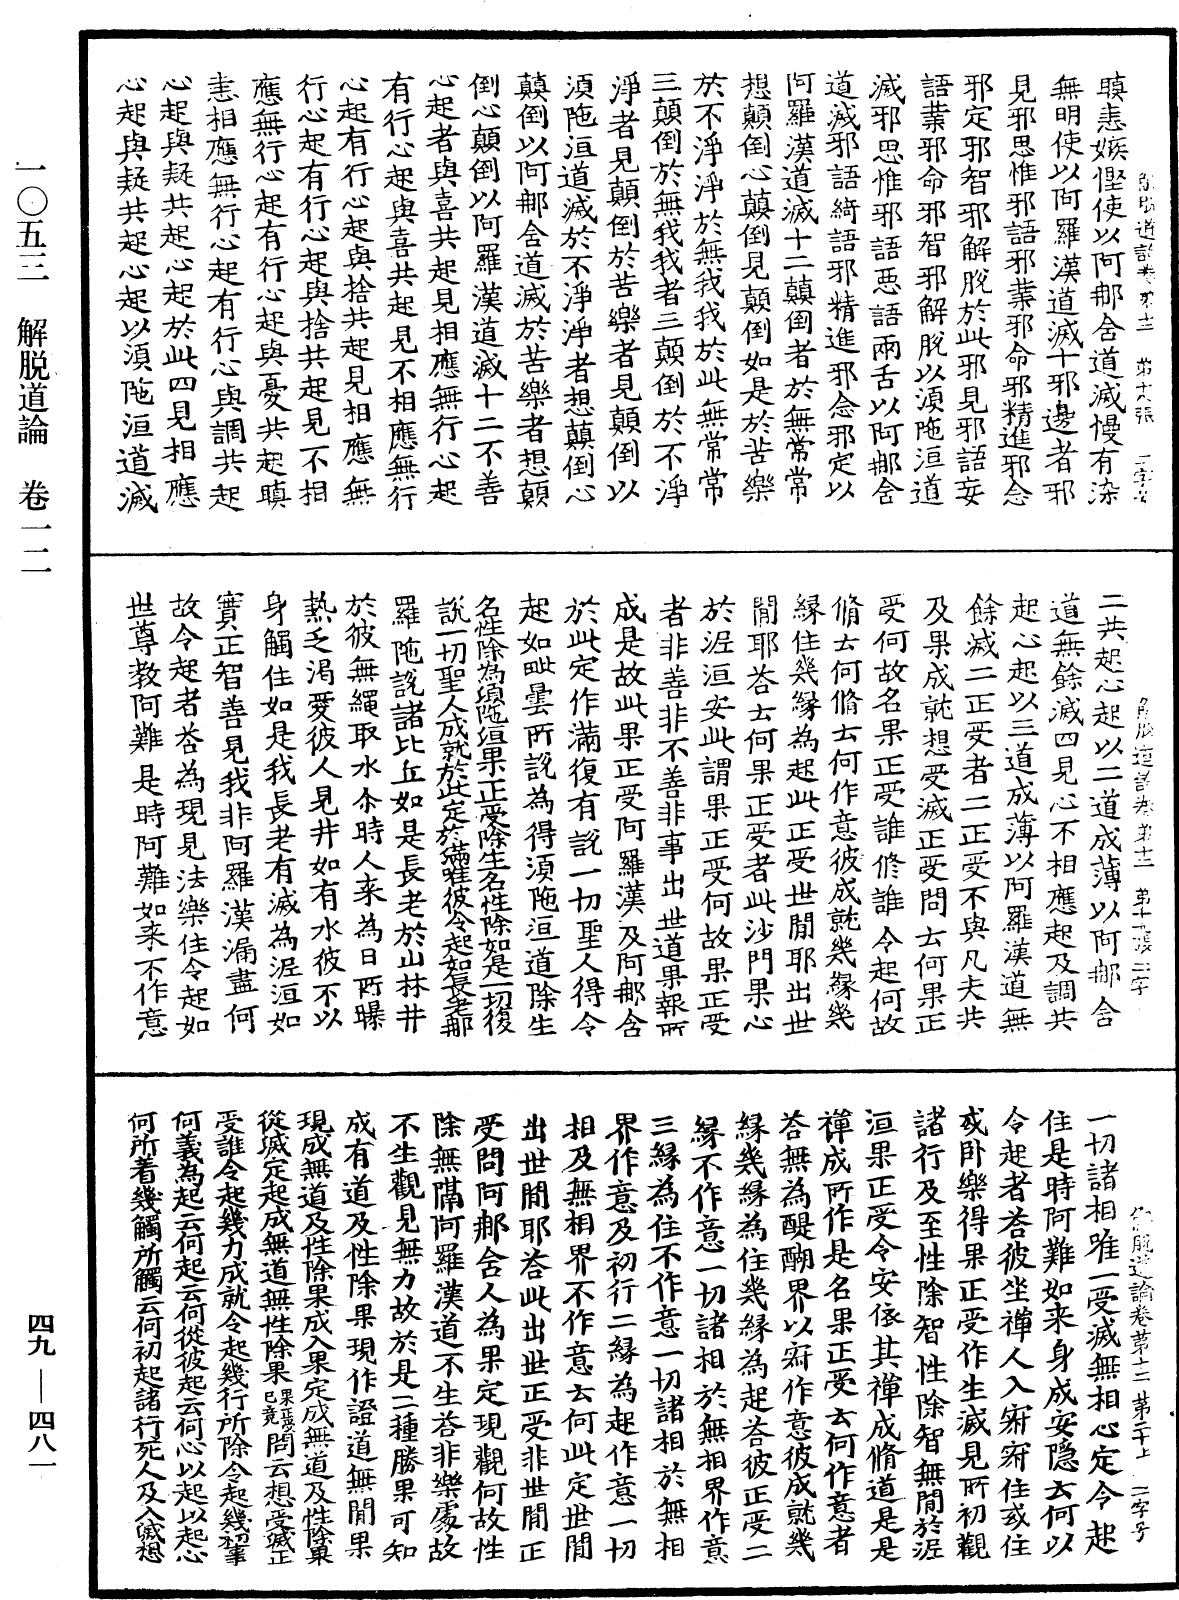 瞋恚嫉慳使以阿那含道滅慢有染
無明使以阿羅漢道滅十邪邊者邪
見邪思惟邪語邪業邪命邪精進邪念
邪定邪智邪解脫於此邪見邪語妄
語業邪命邪智邪解脫以須陁洹道
滅邪思惟邪語惡語兩舌以阿那含
道滅邪語綺語邪精進邪念邪定以
阿羅漢道滅十二顛倒者於無常常
想顛倒心顛倒見顛倒如是於苦樂
於不淨淨於無我我於此無常常
三顛倒於無我我者三顛倒於不淨
淨者見顛倒於苦樂者見顛倒以
須陁洹道滅於不淨淨者想顛倒心
顛倒以阿那含道滅於苦樂者想顛
倒心顛倒以阿羅漢道滅十二不善
心起者與喜共起見相應無行心起
有行心起與喜共起見不相應無行
心起有行心起與捨共起見相應無
行心起有行心起與捨共起見不相
應無行心起有行心起與憂共起瞋
恚相應無行心起有行心與調共起
心起與疑共起心起於此四見相應
心起與疑共起心起以須陁洹道滅
二共起心起以二道成薄以阿那含
道無餘滅四見心不相應起及調共
起心起以三道成薄以阿羅漢道無
餘滅二正受者二正受不與凡夫共
及果成就想受滅正受問云何果正
受何故名果正受誰修誰令起何故
脩云何脩云何作意彼成就幾緣幾
緣住幾緣為起此正受世間耶出世
間耶荅云何果正受者此沙門果心
於泥洹安此謂果正受何故果正受
者非善非不善非事出世道果報所
成是故此果正受阿羅漢及阿那含
於此定作滿復有說一切聖人得令
起如毗曇所說為得須陁洹道除生
名性除為須陁洹果正受除生名性除如是一切復
說一切聖人成就於此定於滿唯彼令起如長老那
羅陁說諸比丘如是長老於山林井
於彼無繩取水尒時人来為日所曝
熱乏渴愛彼人見井如有水彼不以
身觸住如是我長老有滅為泥洹如
實正智善見我非阿羅漢漏盡何
故令起者荅為現見法樂住令起如
世尊教阿難是時阿難如来不作意
一切諸相唯一受滅無相心定令起
住是時阿難如来身成安隱云何以
令起者荅彼坐禪人入寂寂住或住
或卧樂得果正受作生滅見所初觀
諸行及至性除智性除智無間於泥
洹果正受令安依其禪成脩道是是
禪成所作是名果正受云何作意者
荅無為醍醐界以寂作意彼成就幾
緣幾緣為住幾緣為起荅彼正受二
緣不作意一切諸相於無相界作意
三緣為住不作意一切諸相於無相
界作意及初行二緣為起作意一切
相及無相界不作意云何此定世間
出世間耶荅此出世正受非世間正
受問阿那含人為果定現觀何故性
除無隔阿羅漢道不生荅非樂處故
不生觀見無力故於是二種勝果可知
成有道及性除果現作證道無間果
現成無道及性除果成入果定成無道及性除果
從滅定起成無道無性除果果正受已竟問云想受滅正
受誰令起幾力成就令起幾行所除令起幾初事
何義為起云何起云何從彼起云何心以起以起心
何所着幾觸所觸云何初起諸行死人及入滅想
一〇五三　解脱道論　卷一二
四九—四八一